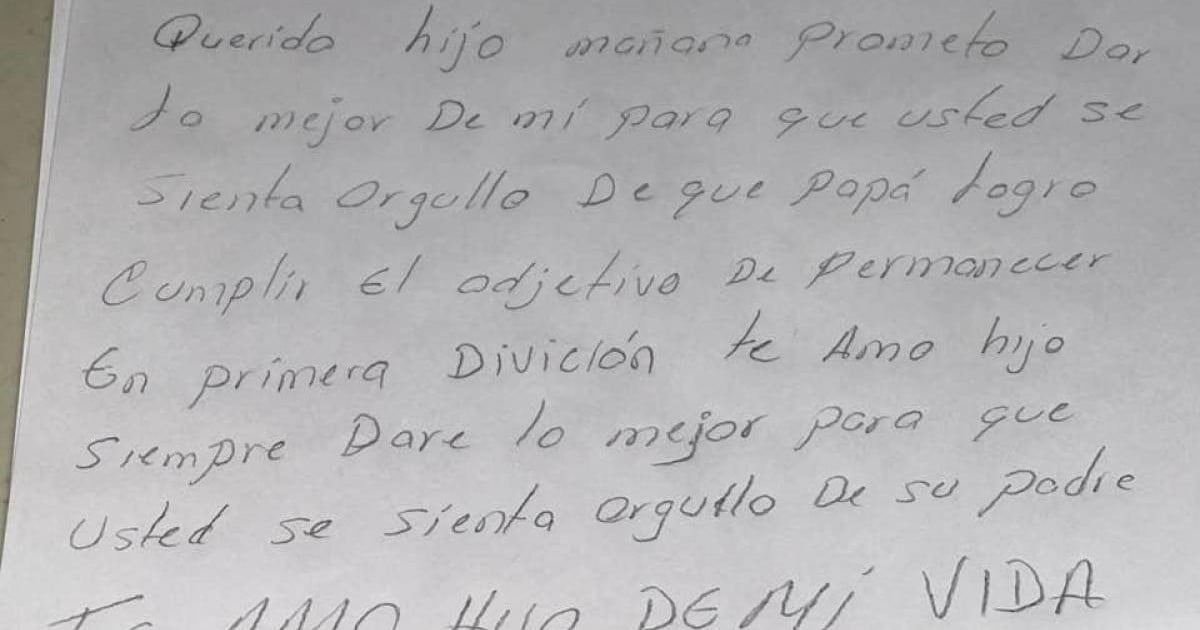 Querido hijo mañana prometo Dar
lo mejor De mí para que usted se
Sienta Orgullo De que Papá logro
Cumplir El odjetivo De Permanecer
En primera Divición te Amo hijo
Siempre Dare lo mejor para que
Usted se sienta orgullo De su padre
Te AMO HIJO DE Mi VIDA